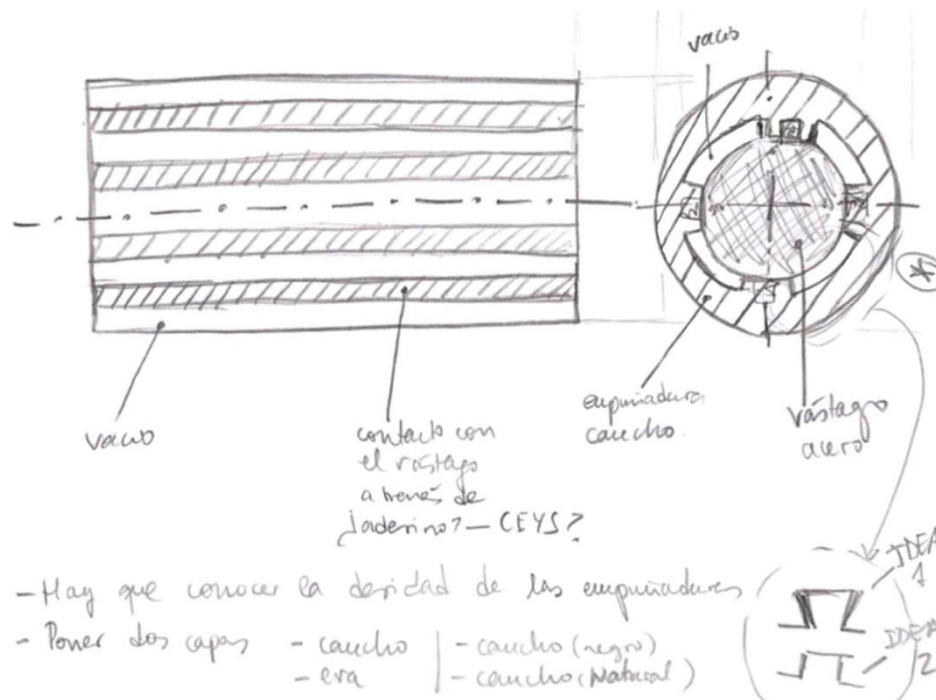 vacio
vacio
contacto con
el vástago
a través de
¿adesivo? — CEYS?
empuñadura
caucho.
vástago
acero
IDEA
1
IDEA
2
- Hay que conocer la desidad de las empuñaduras
- Poner dos capas - caucho | - caucho (negro)
- eva | - caucho (Natural)